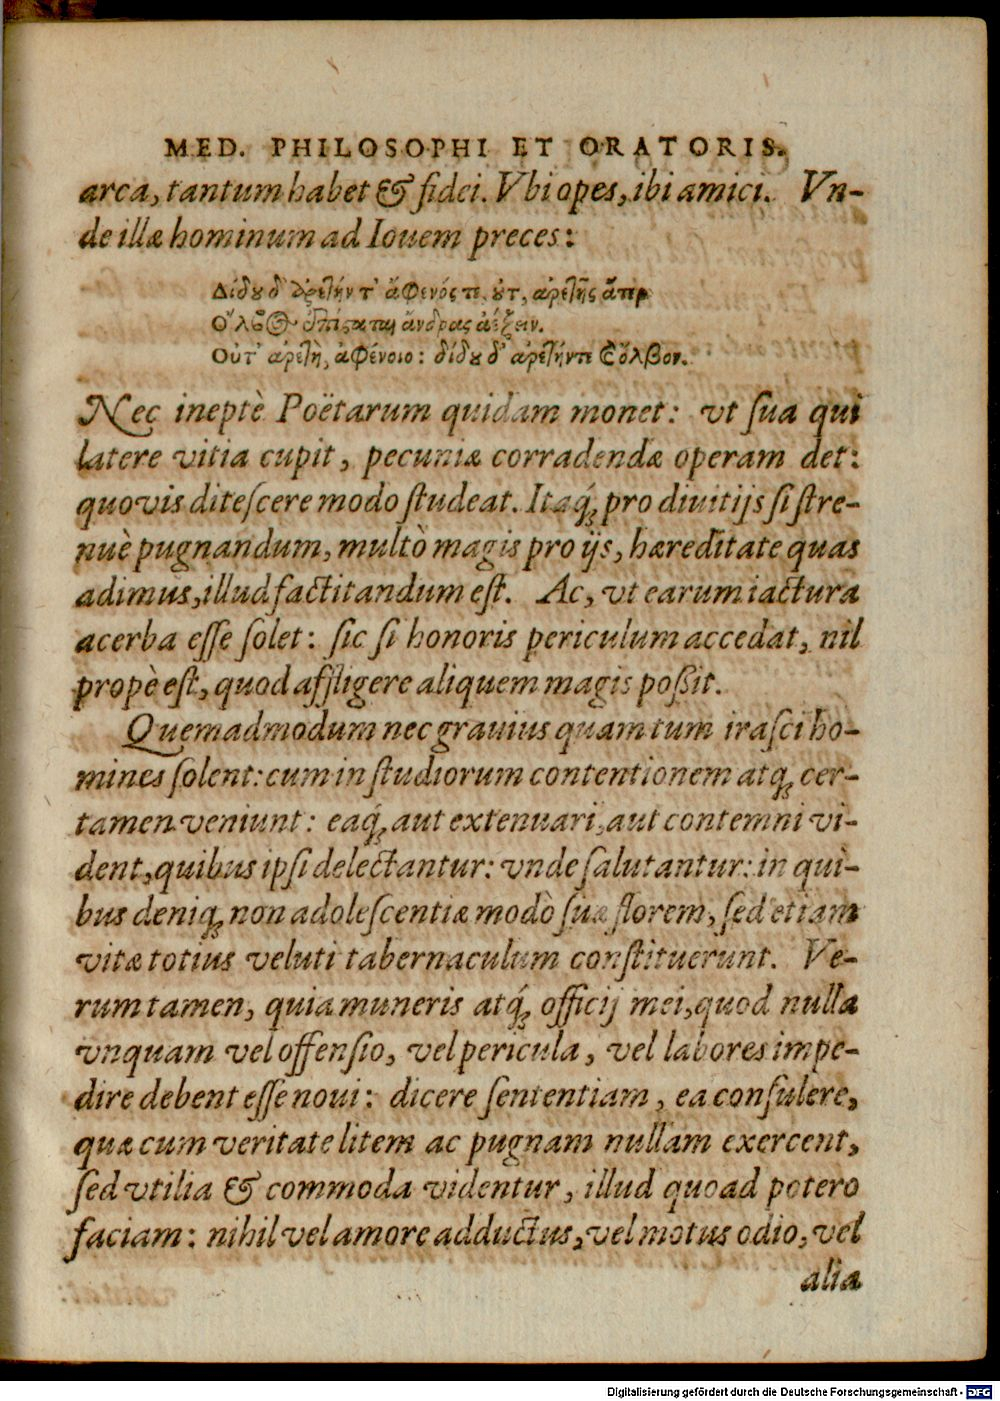 MED. PHILOSOPHI ET ORATORIS.
arca, tantum habet & fidei. Vbi opes, ibi amici. Vn-
de illæ hominum ad Iouem preces:
Δίδȣ δ' ἀρετήν τ' ἄφενός τε. ȣτ, ἀρετῆς ἄτερ
ἄνδρας ἀέξειν.
Οὐτ' ἀρετὴ, ἀφένοιο: δίδȣ δ' ἀρετήντε ὄλβον.
Nec ineptè Poëtarum quidam monet: vt ſua qui
latere vitia cupit, pecuniæ corradendæ operam det:
quovis diteſcere modo ſtudeat. Itaq́; pro diuitijs ſi ſtre-
nuè pugnandum, multò magis pro ijs, hæreditate quas
adimus, illud factitandum eſt. Ac, vt earum iactura
acerba eſſe ſolet: ſic ſi honoris periculum accedat, nil
propè eſt, quod affligere aliquem magis poßit.
Quemadmodum nec grauius quam tum iraſci ho-
mines ſolent: cum in ſtudiorum contentionem atq; cer-
tamen veniunt: eaq́; aut extenuari, aut contemni vi-
dent, quibus ipſi delectantur: vnde ſalutantur: in qui-
bus deniq; non adoleſcentiæ modò ſuæ florem, ſed etiam
vitæ totius veluti tabernaculum conſtituerunt. Ve-
rum tamen, quia muneris atq́; officij mei, quod nulla
vnquam vel offenſio, vel pericula, vel labores impe-
dire debent eſſe noui: dicere ſententiam, ea conſulere,
quæ cum veritate litem ac pugnam nullam exercent,
ſed vtilia & commoda videntur, illud quoad potero
faciam: nihil vel amore adductus, vel motus odio, vel
alia
Digitalisierung gefördert durch die Deutsche Forschungsgemeinschaft - DFG